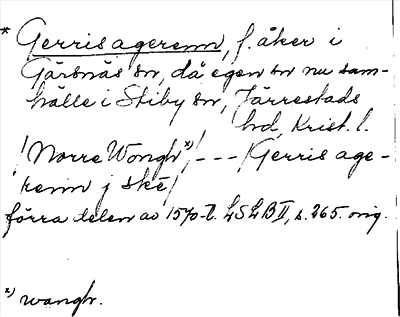 * Gerris agerenn, f. åker i
Gärsnäs sn, då egen sn nu sam-
hälle i Stiby sn, Järrestads
hd, Krist. l.
/Norre Wongh x)/ --- /Gerris age-
renn j ske/
förra delen av 1570-t. LSLB II, s. 265. orig.
x) wangh.